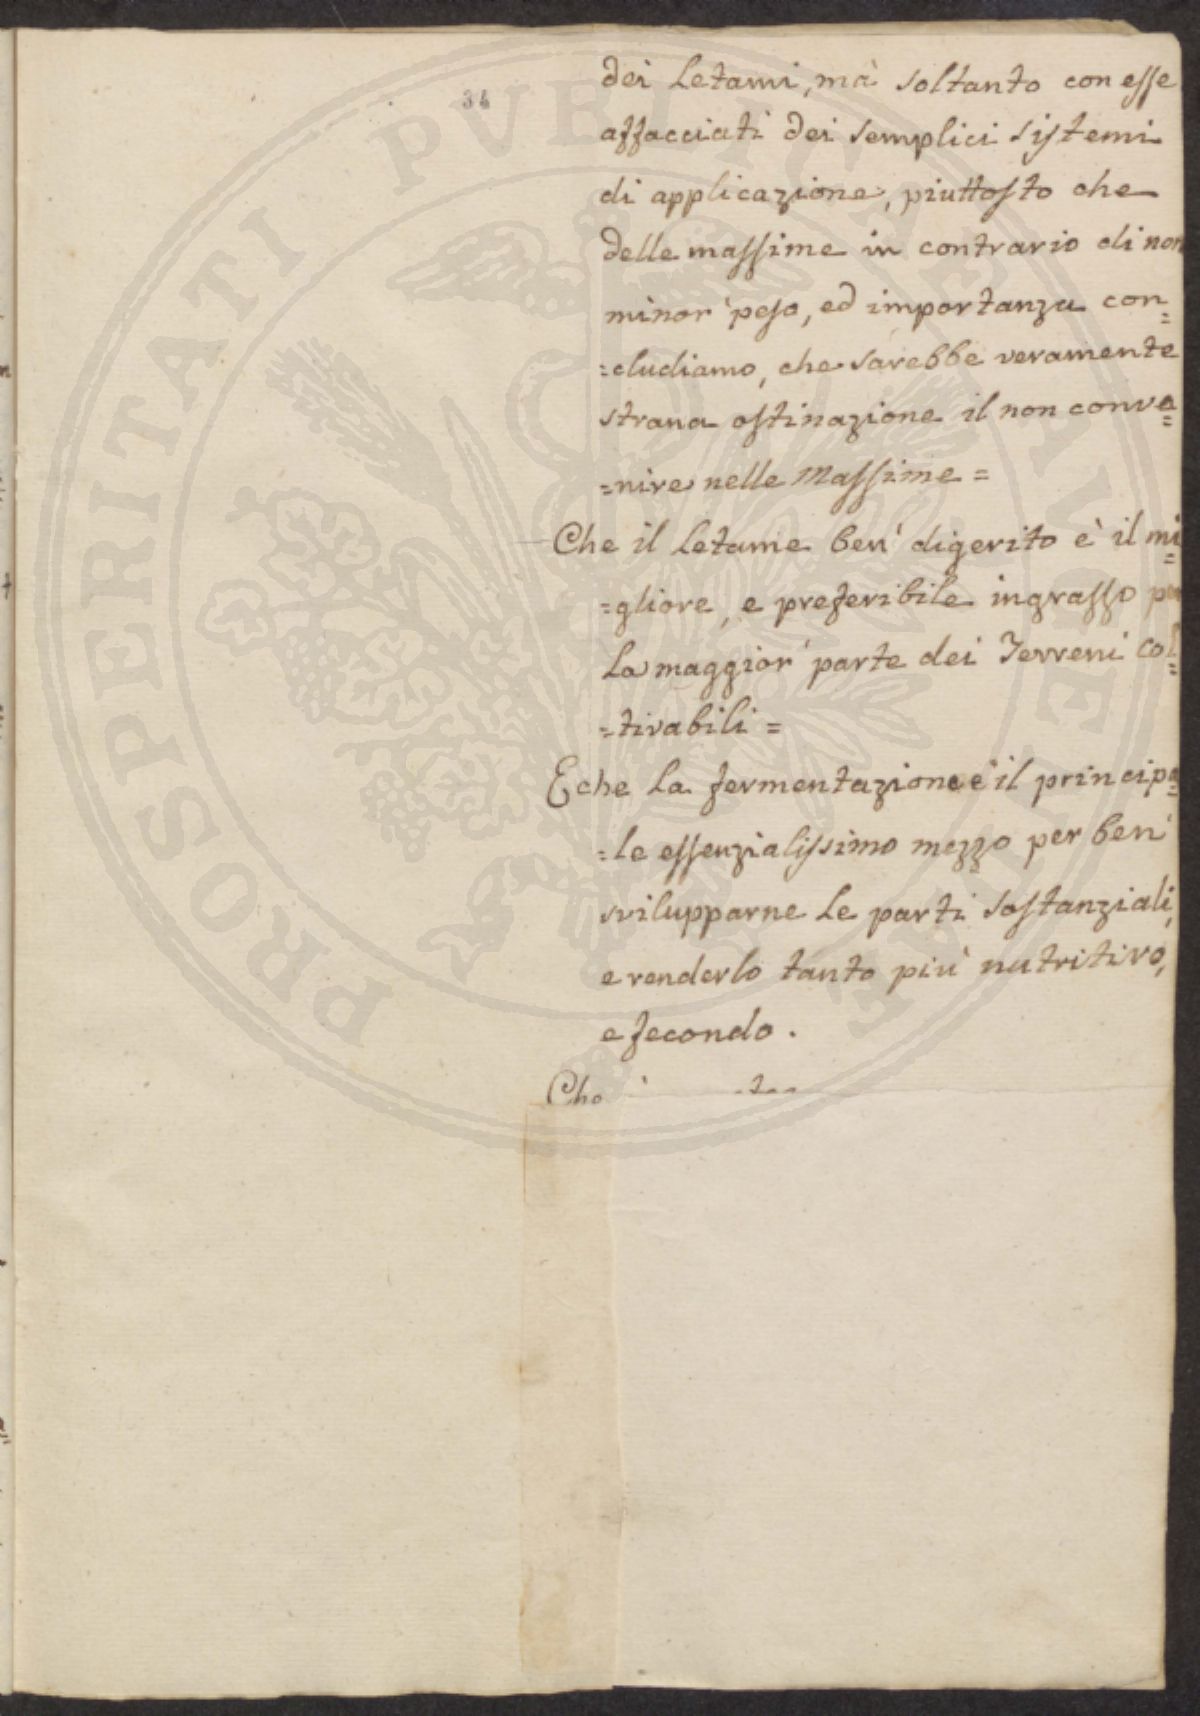 34
dei Letami, mà soltanto con esse
affacciati dei semplici sistemi
di applicazione, piuttosto che
delle massime in contrario di non
minor' peso, ed importanza con=
=cludiamo, che sarebbe veramente
strana ostinazione il non conve=
=nire nelle Massime =
Che il Letame ben' digerito è il mi=
=gliore, e preferibile ingrasso per
La maggior' parte dei Terreni Col=
=tivabili =
E che La fermentazione è il principa=
=le essenzialissimo mezzo per ben'
svilupparne Le parti sostanziali,
e renderlo tanto più nutritivo,
e fecondo.
Che
PROSPERITATI PVBLICAE AVGENDAE